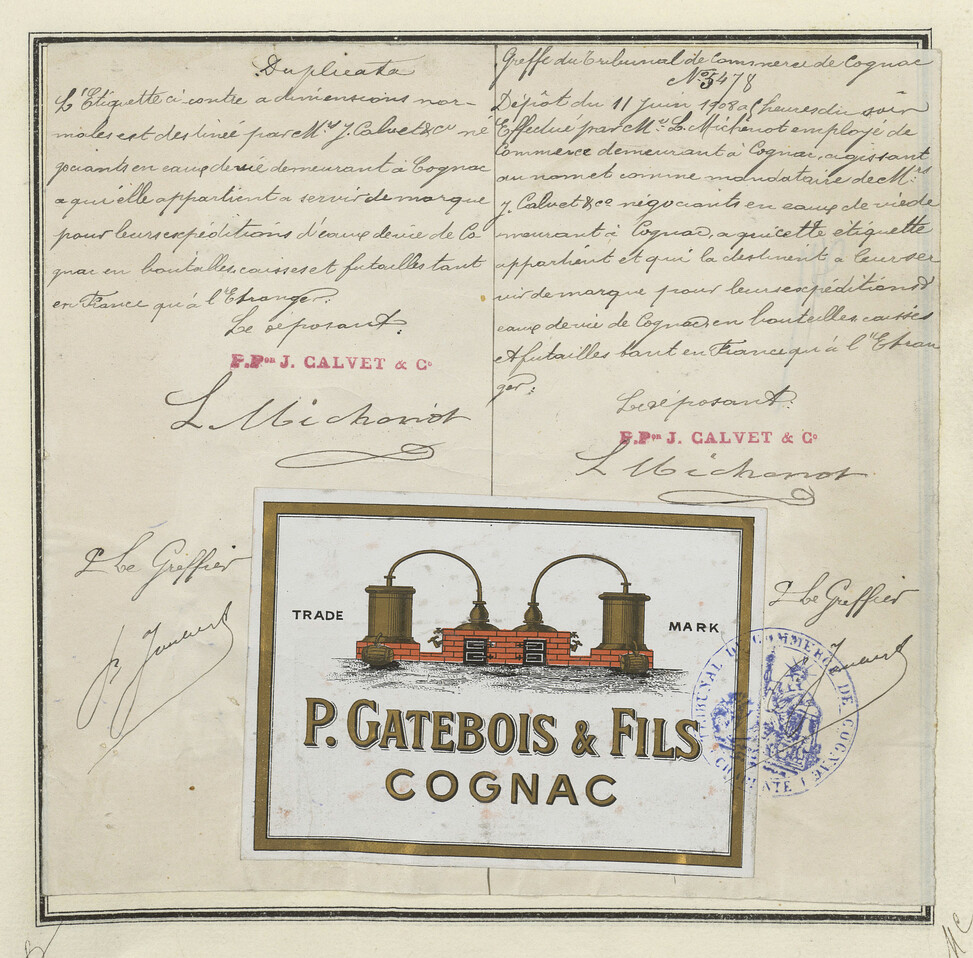 Duplicata
L'Etiquette ci contre a dimensions nor-
males est destinée par Mrs J. Calvet & Cie né
gociants en eaux de vie demeurant à Cognac
a qui elle appartient a servir de marque
pour leurs expéditions d'eaux de vie de Co
gnac en bouteilles, caisses et futailles tant
en France qu'à l'Etranger.
Le déposant:
P. Pon J. CALVET & Co
L Michenot
P Le Greffier
Greffe du Tribunal de Commerce de Cognac
No 5478
Dépôt du 11 Juin 1908 a heures du soir
Effectué par Mr L. Michenot employé de
Commerce demeurant à Cognac, agissant
au nom et comme mandataire de Mrs
J. Calvet & Ce négociants en eaux de vie de
meurant à Cognac, a qui cette étiquette
appartient et qui la destinent a leur ser
vir de marque pour leurs expéditions d'
eaux de vie de Cognac en bouteilles, caisses
et futailles tant en France qu'à l'Etran
ger:
Le déposant:
P. Pon J. CALVET & Co
L Michenot
P Le Greffier
TRADE MARK
P. GATEBOIS & FILS
COGNAC
TRIBUNAL DE COMMERCE DE COGNAC